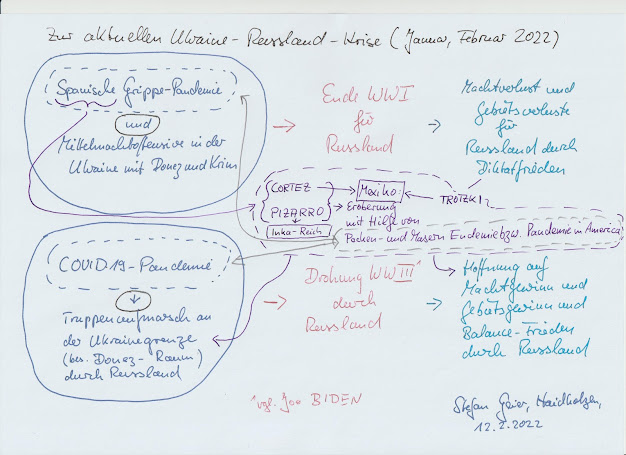 Zur aktuellen Ukraine-Russland-Krise (Januar, Februar 2022)
Spanische Grippe-Pandemie
und
Mittelmachtoffensive in der
Ukraine mit Donez und Krim
Ende WWI
für
Russland
Machtverlust und
Gebietsverluste
für
Russland durch
Diktatfrieden
CORTEZ
PIZARRO
Inka-Reich
Mexiko:
Eroberung
mit Hilfe von
Pocken- und Masern Endemie bzw. Pandemie in America
TROTZKI
COVID19-Pandemie
Truppenaufmarsch an
der Ukrainegrenze
(bes. Donez-Raum)
durch Russland
Drohung WWIII¹
durch
Russland
Hoffnung auf
Machtgewinn und
Gebietsgewinn und
Balance-Frieden
durch Russland
¹vgl. Joe BIDEN
Stefan Geier, Haidholzen,
12.2.2022